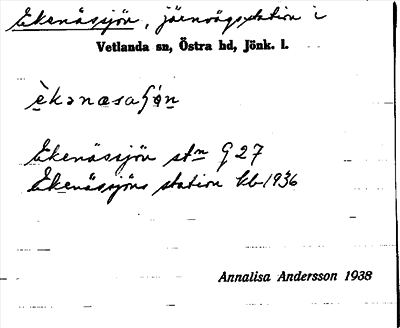 Ekenässjön, järnvägsstation i
Vetlanda sn, Östra hd, Jönk. l.
Ekenässjön stn G 27
Ekenässjöns station kb 1936
Annalisa Andersson 1938